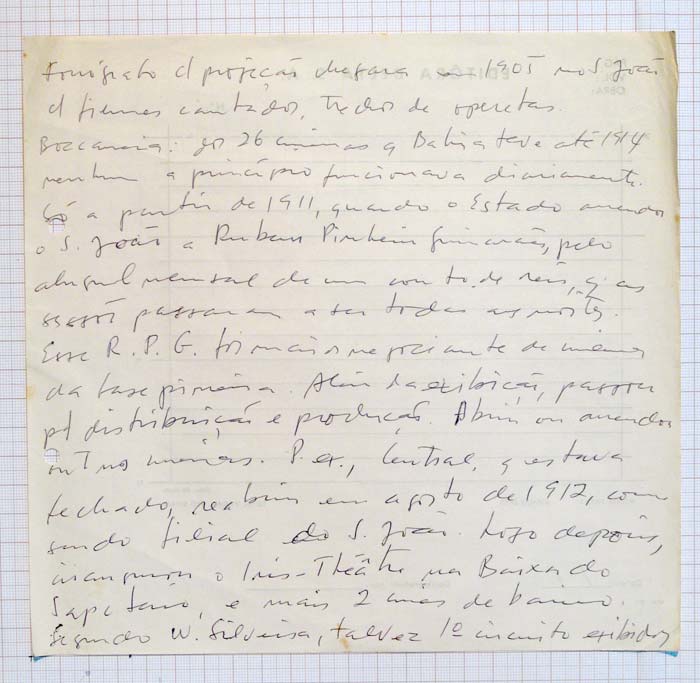 Fonógrafo c/ projeção chegara em 1905 no S. João
c/ filmes cantados, trechos de operetas.
Boccanera: dos 26 cinemas q Bahia teve até 1914
nenhum a princípio funcionava diariamente.
Só a partir de 1911, quando o Estado arrendou
o S. João a Rubem Pinheiro Guimarães, pelo
aluguel mensal de um conto de réis, q as
sessões passaram a ser todas as noites.
Esse R. P. G. foi maior negociante de cinema
da fase pioneira. Além da exibição, passou
p/ distribuição e produção. Abriu ou arrendou
outros cinemas. P. ex., Central, q estava
fechado, reabriu em agosto de 1912, como
sendo filial do S. João. Logo depois,
inaugurou o Iris-Théâtre na Baixa do
Sapateiro, e mais 2 cines de bairro.
Segundo W. Silveira, talvez 1º circuito exibidor
EDITÔRA